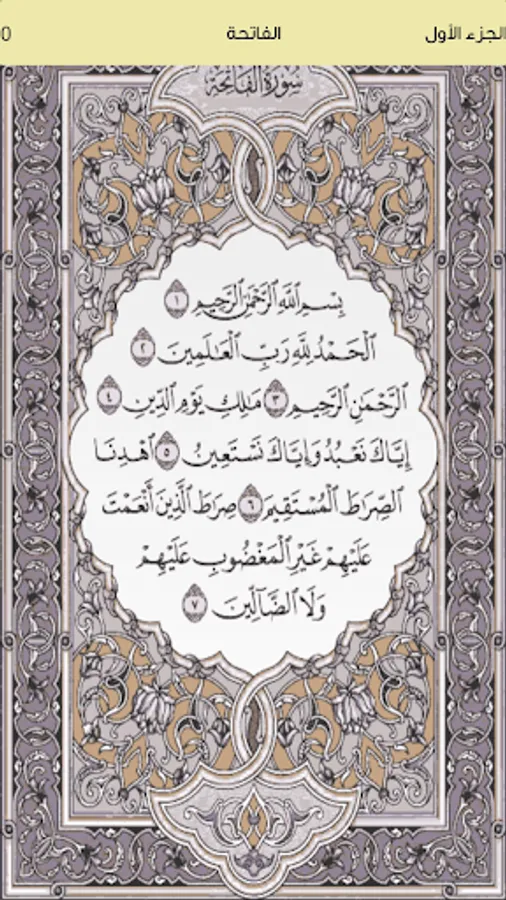 الجزء الأول
الفاتحة
سُورَةُ الْفَاتِحَةِ
بِسْمِ ٱللَّهِ ٱلرَّحْمَٰنِ ٱلرَّحِيمِ ١
ٱلْحَمْدُ لِلَّهِ رَبِّ ٱلْعَٰلَمِينَ ٢
ٱلرَّحْمَٰنِ ٱلرَّحِيمِ ٣ مَٰلِكِ يَوْمِ ٱلدِّينِ ٤
إِيَّاكَ نَعْبُدُ وَإِيَّاكَ نَسْتَعِينُ ٥ ٱهْدِنَا
ٱلصِّرَٰطَ ٱلْمُسْتَقِيمَ ٦ صِرَٰطَ ٱلَّذِينَ أَنْعَمْتَ
عَلَيْهِمْ غَيْرِ ٱلْمَغْضُوبِ عَلَيْهِمْ
وَلَا ٱلضَّآلِّينَ ٧